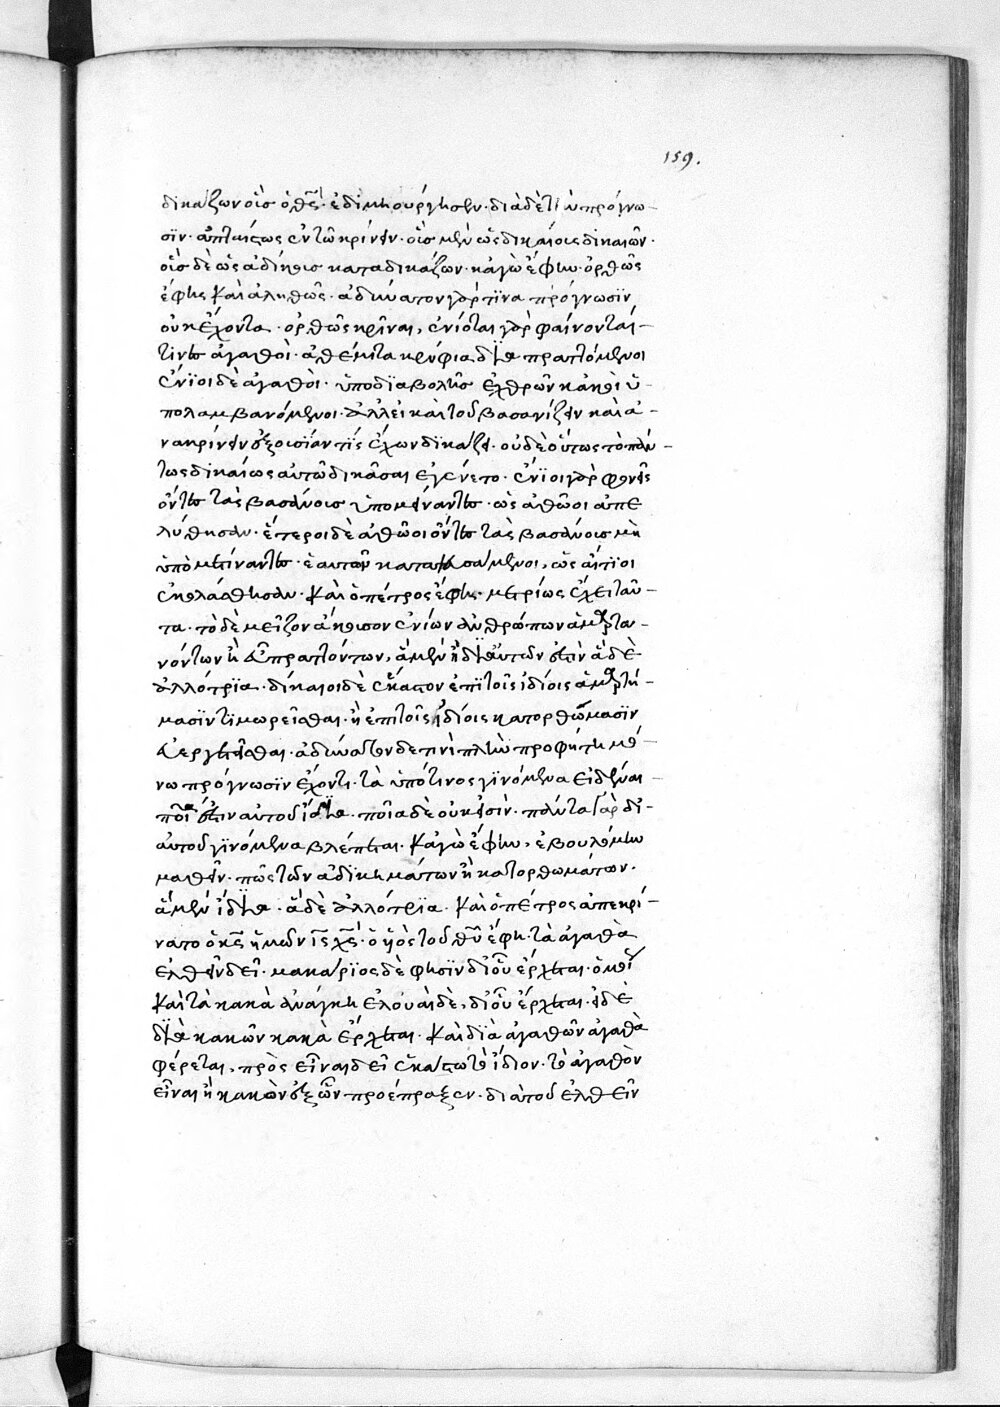 159.
δικάζων οἷς ὁ θς̅ ἐδημιούργησεν· διὰ δὲ τὴν πρόγνω–
σϊν· ἀπταίστως ἐν τῶ κρίνειν· οἷς μὲν ὡς δικαίοις δίκαιῶν·
οἷς δὲ ὡς ἀδίκοις καταδικάζων· κἀγὼ ἔφην· ὀρθῶς
ἔφης καὶ ἀληθῶς· ἀδύνατον γάρ τϊνα πρόγνωσϊν
οὐκ ἔχοντα· ὀρθῶς κρῖναι, ἐνίοται γὰρ φαίνονταί–
τινες ἀγαθοὶ· ἀθέμιτα κρύφια δὲ πραττόμενοι
ἔνϊοι δὲ ἀγαθὸι· ὑπὸ διαβολῆς ἐχθρῶν κακοὶ ὑ–
πολαμβανόμενοι· ἀλλ' εἰ καὶ τοῦ βασανίζειν καὶ ἀ–
νακρίνειν ἐξουσίαν τῒς ἔχων δϊκάζει· οὐδὲ οὕτως τὸ πάν–
τως δικαίως αὐτῶ δικᾶσαι ἐγένετο· ἔνϊοι γὰρ φονεῖς
ὄντες τὰς βασάνους ὑπομείναντες· ὡς ἀθῶοι ἀπε
λύθησαν· ἕτεροι δὲ ἀθῶοι ὄντες τὰς βασάνους μὴ
ὑπομείναντες· ἑαυτῶν καταψευσάμενοι, ὡς αἴτϊοι
ἐκολάσθησαν· καὶ ὁ πέτρος ἔφη· μετρίως ἔχει ταῦ–
τα· τὸ δὲ μεῖζον ἄκουσον ἐνίων ἀνθρώπων ἁμαρτα–
νόντων ἢ εὖ πραττόντων, ἃ μὲν ἴδϊα αὐτῶν ἐστὶν ἃ δὲ
ἀλλότρϊα· δίκαιοι δὲ ἕκαστον ἐπϊ τοῖς ἰδίοις ἁμαρτή–
μασϊν τιμωρεῖσθαι· ἢ ἐπὶ τοῖς ἰδίοις κατορθώμασϊν
εὐεργετεῖσθαι· ἀδύνατον δέ τινι πλὴν προφήτη μό–
νω πρόγνωσϊν ἔχοντι· τὰ ὑπό τινος γϊνόμενα εἰδέναι–
ποῖά ἐστιν αὐτοῦ ἴδϊα· ποῖα δὲ οὐκ εἰσὶν· πάντα γὰρ δι'–
αὐτοῦ γϊνόμενα βλέπεται· κἀγὼ ἔφην, ἐβουλόμην
μαθεῖν· πῶς τῶν ἀδϊκημάτων ἢ κατορθωμάτων·
ἃ μὲν ἴδϊα· ἃ δὲ ἀλλότρϊα· καὶ ὁ πέτρος ἀπεκρί–
νατο ὁ κς̅ ἡμῶν ις̅ χς̅· ὁ υἱὸς τοῦ θῦ ἔφη· τὰ ἀγαθὰ
ἐλθεῖν δεῖ· μακάρϊος δὲ φησϊν δι' οὗ ἔρχεται· ὁμοί
καὶ τὰ κακὰ ἀνάγκη ἐλθεῖν οὐαὶ δὲ, δι' οὗ ἔρχεται· εἰ δὲ
δϊὰ κακῶν κακὰ ἔρχεται· καὶ δϊὰ ἀγαθῶν ἀγαθὰ
φέρεται, πρὸς εἶναι δεῖ ἑκάστω τὸ ἴδιον· τὸ ἀγαθὸν
εἶναι ἢ κακὸν ἐξ ὧν προέπραξεν· διὰ τοῦ ἐλθεῖν